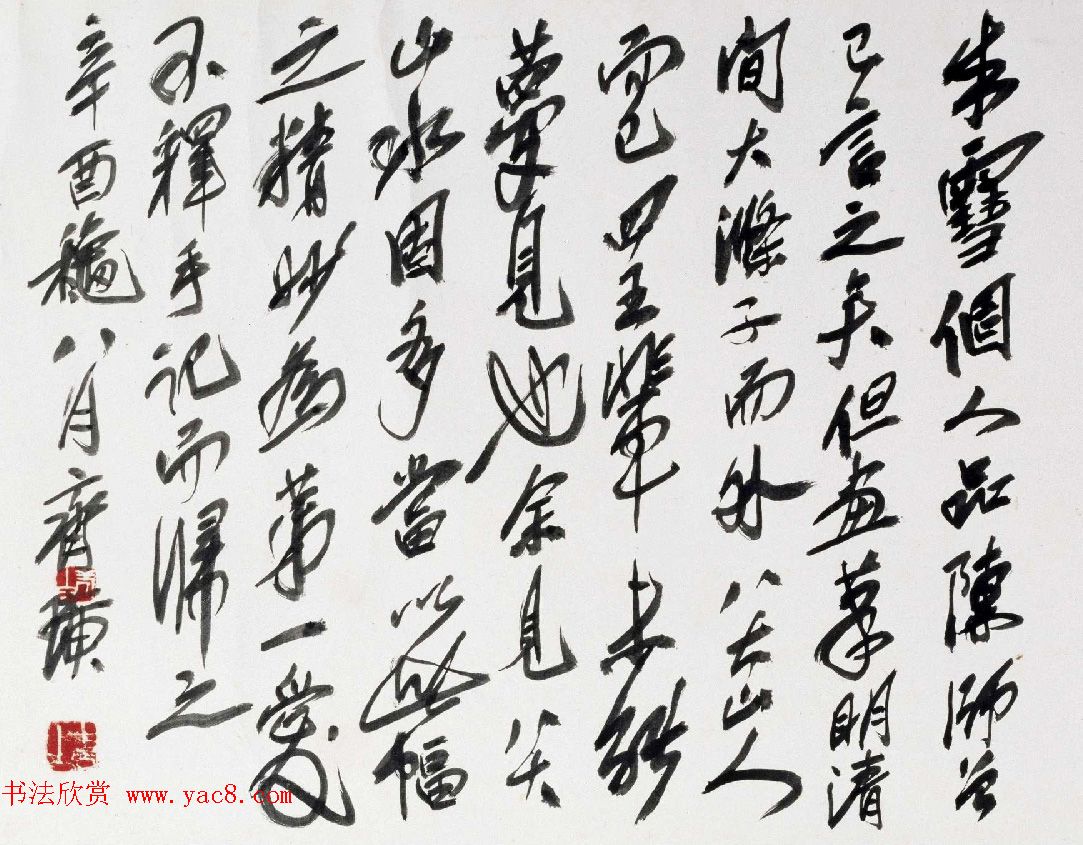 朱雪個人品陳師曾
已言之矣但畫筆明清
間大滌子而外八大山人
而已四王輩未能
夢見也余見八大
山水固多當以此幅
之精妙為第一愛
不釋手記而歸之
辛酉穐八月齊璜
书法欣赏 www.yac8.com